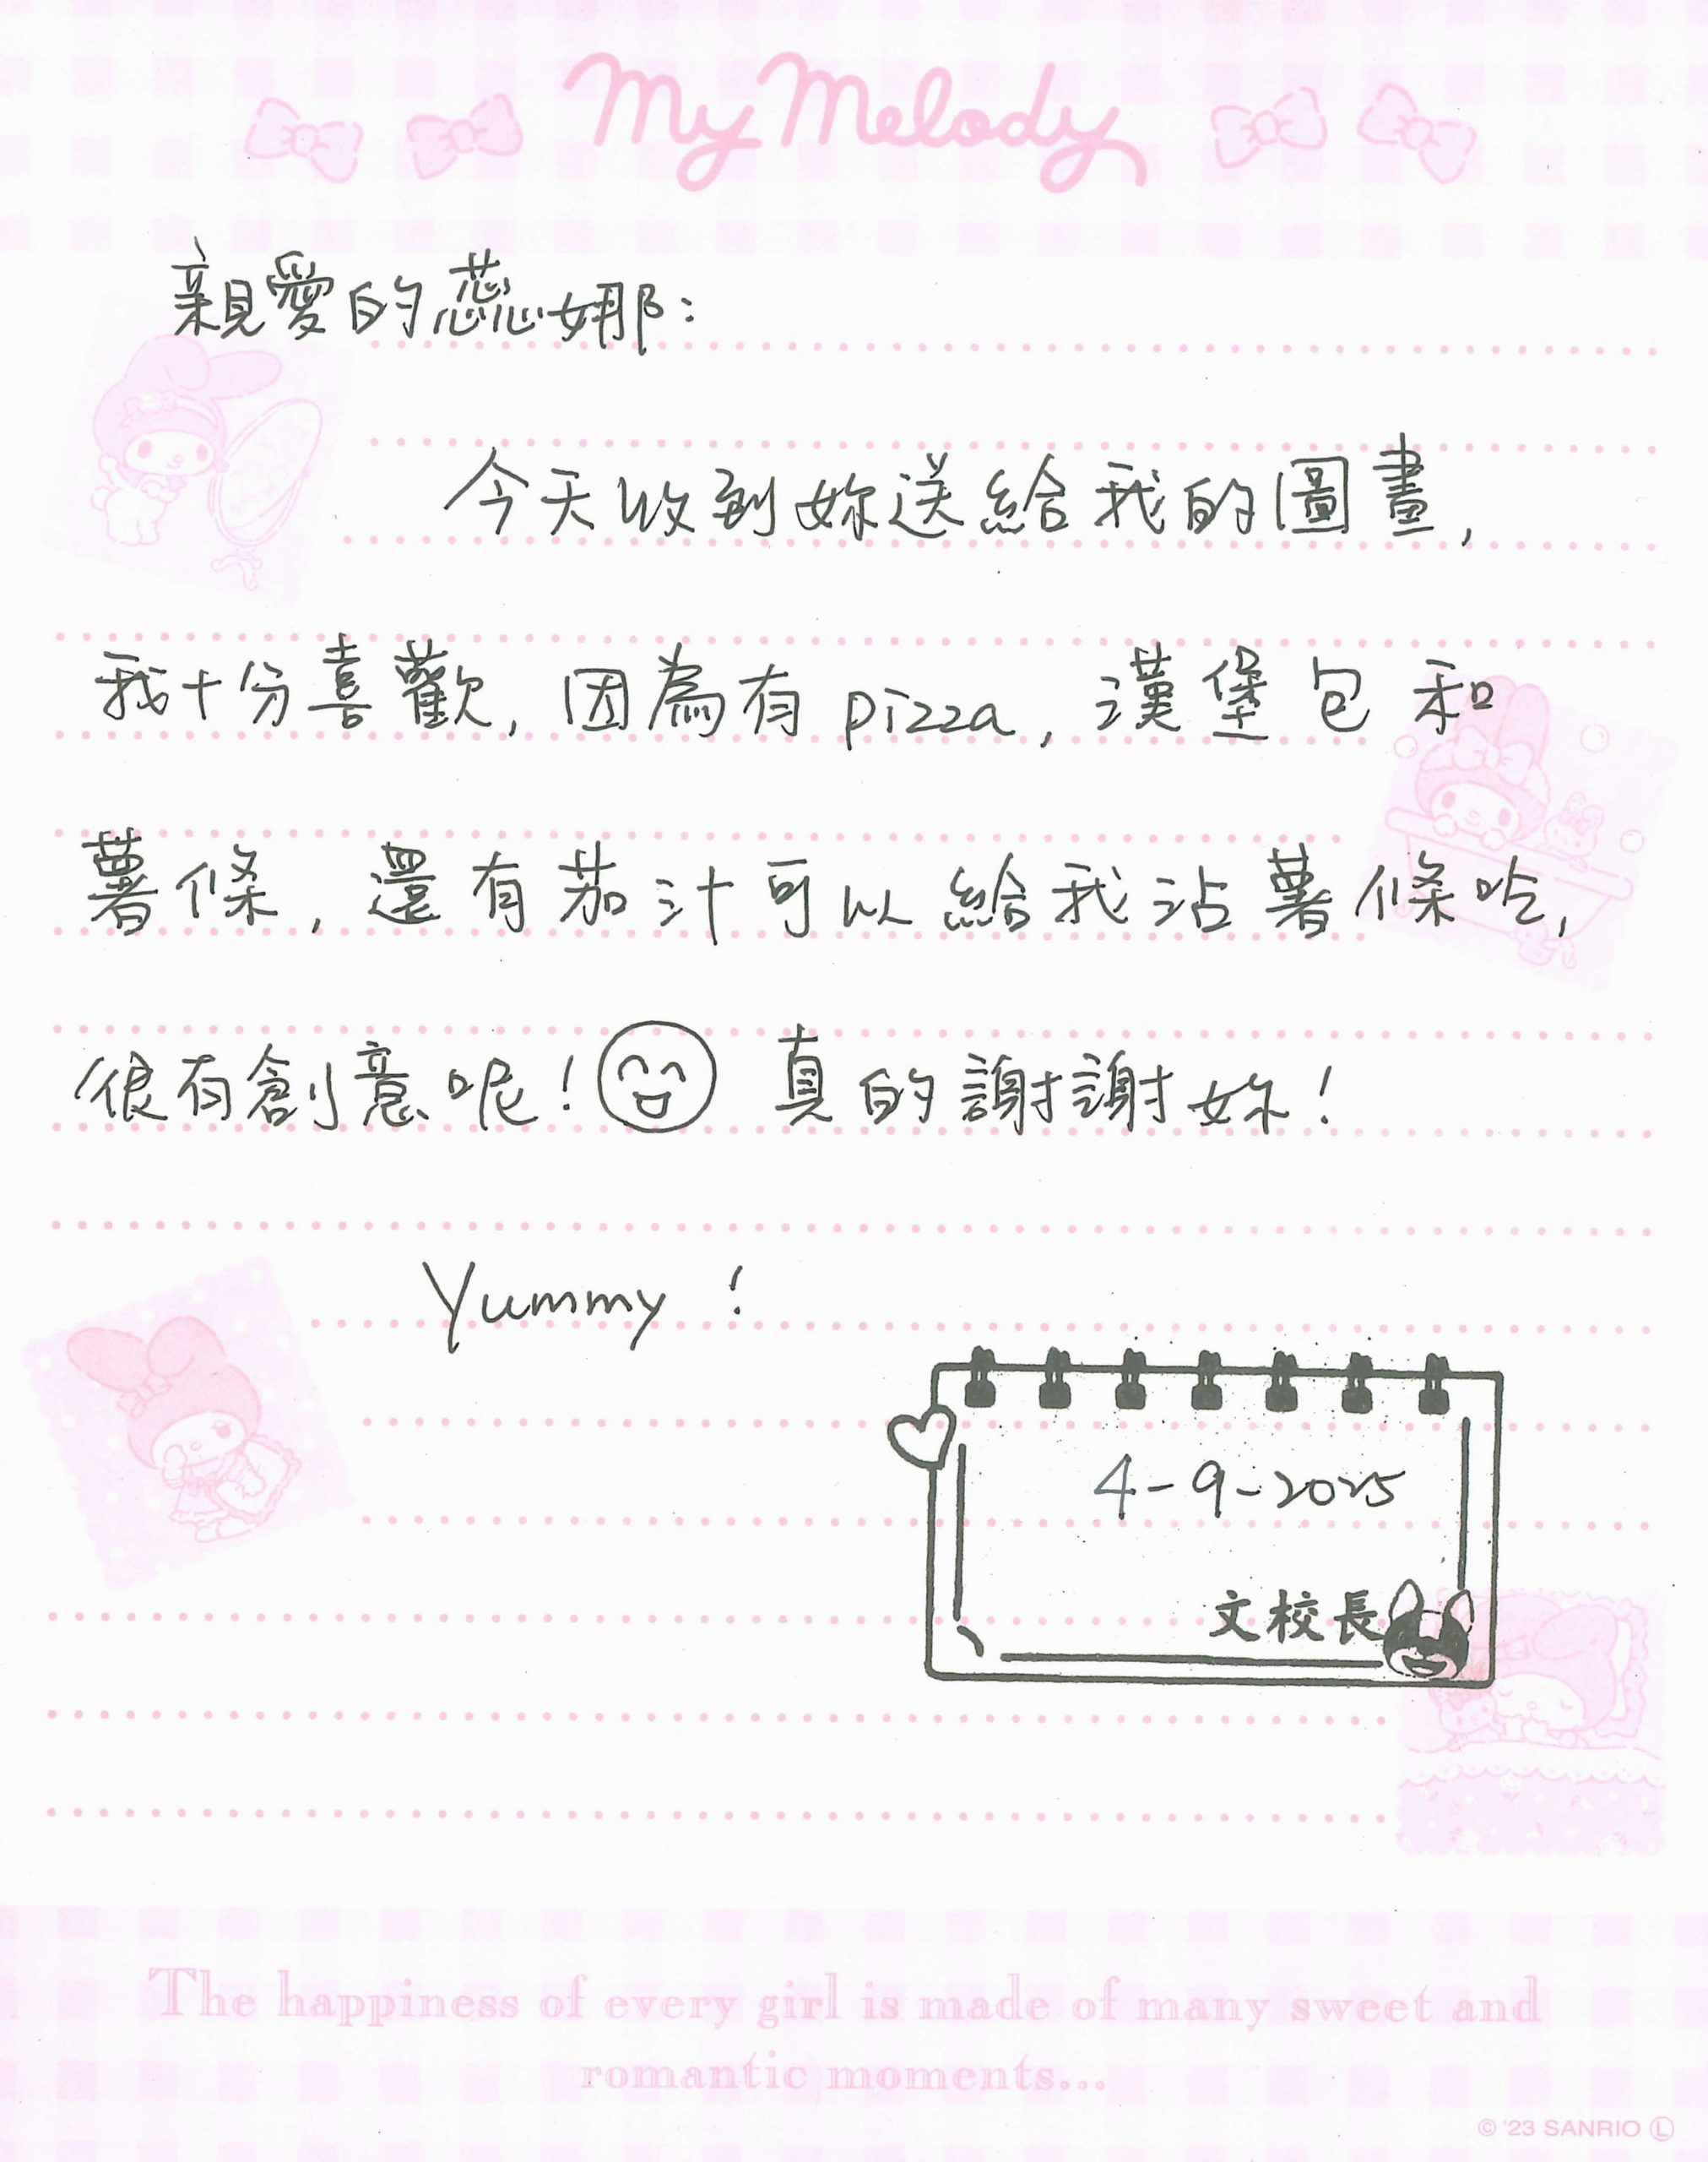 My Melody
親愛的蕊娜:
今天收到妳送給我的圖畫,
我十分喜歡,因為有pizza,漢堡包和
薯條,還有茄汁可以給我沾薯條吃,
很有創意呢! 真的謝謝妳!
Yummy!
4-9-2025
文校長
The happiness of every girl is made of many sweet and
romantic moments...
© '23 SANRIO Ⓛ